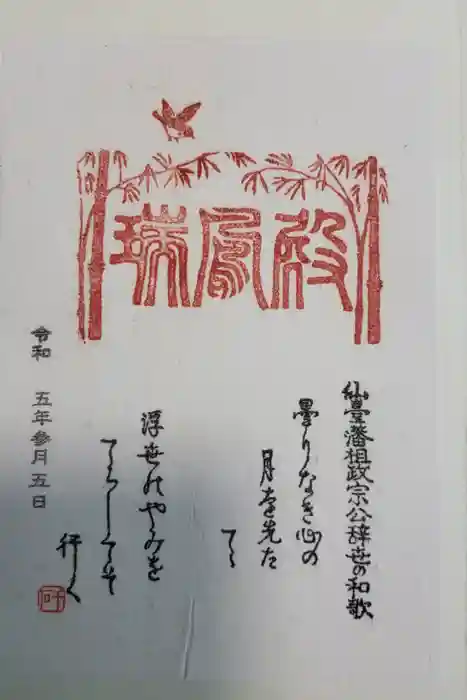 瑞鳳殿
仙臺藩祖政宗公辞世の和歌
曇りなき心の
月を先だ
てゝ
浮世のやみを
てらしてぞ
行く
令和 五年参月五日